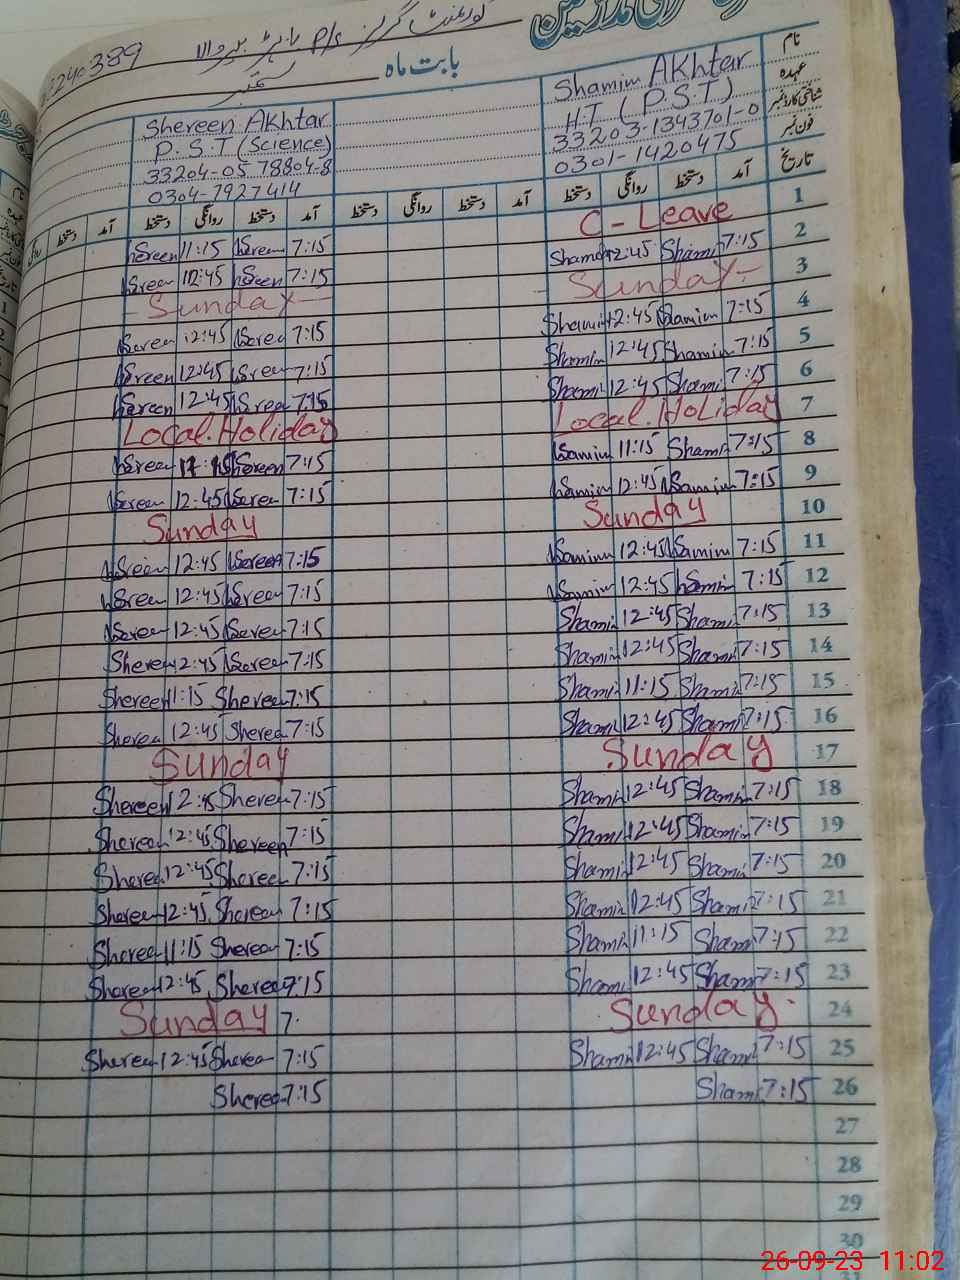 گورنمنٹ گرلز P/s
بابت ماہ ستمبر
نام Shamim Akhtar Shereen Akhtar
عہدہ H.T (P.S.T) P.S.T (Science)
شناختی کارڈ نمبر 33203-1343701-0 33204-0578804-8
فون نمبر 0301-1420475 0304-7927414
تاریخ آمد دستخط روانگی دستخط آمد دستخط روانگی دستخط آمد دستخط روانگی دستخط آمد دستخط
1 C-Leave 7:15 Sereen 11:15 Sereen
2 7:15 Shami 12:45 Sham 7:15 Sereen 12:45 Sreen
3 Sunday Sunday
4 7:15 Samim 12:45 Shamim 7:15 Seree 12:45 Sereen
5 7:15 Shamim 12:45 Shamim 7:15 Sreen 12:45 Sreen
6 7:15 Shami 12:45 Shami 7:15 Sreen 12:45 Sereen
7 Local.Holiday Local.Holiday
8 7:15 Shami 11:15 Samim 7:15 Shereen Sreen
9 7:15 Samim 12:45 Samim 7:15 Sereen 12:45 Sreen
10 Sunday Sunday
11 7:15 Samim 12:45 Samim 7:15 Sereen 12:45 Sreen
12 7:15 Samim 12:45 Samim 7:15 Sereen 12:45 Sreen
13 7:15 Shami 12:45 Shami 7:15 Sereen 12:45 Sereen
14 7:15 Shami 12:45 Shami 7:15 Sereen 12:45 Shereen
15 7:15 Shami 11:15 Shami 7:15 Shereen 11:15 Shereen
16 7:15 Shami 12:45 Shami 7:15 Shereen 12:45 Shereen
17 Sunday Sunday
18 7:15 Shami 12:45 Shami 7:15 Shereen 12:45 Shereen
19 7:15 Shamin 12:45 Shami 7:15 Shereen 12:45 Shereen
20 7:15 Shami 12:45 Shami 7:15 Shereen 12:45 Shereen
21 7:15 Shami 12:45 Shami 7:15 Shereen 12:45 Shereen
22 7:15 Shami 11:15 Shami 7:15 Shereen 11:15 Shereen
23 7:15 Shami 12:45 Shami 7:15 Shereen 12:45 Shereen
24 Sunday Sunday 7.
25 7:15 Shami 12:45 Shami 7:15 Shereen 12:45 Shereen
26 7:15 Shami 7:15 Shereen
27
28
29
30
26-09-23 11:02